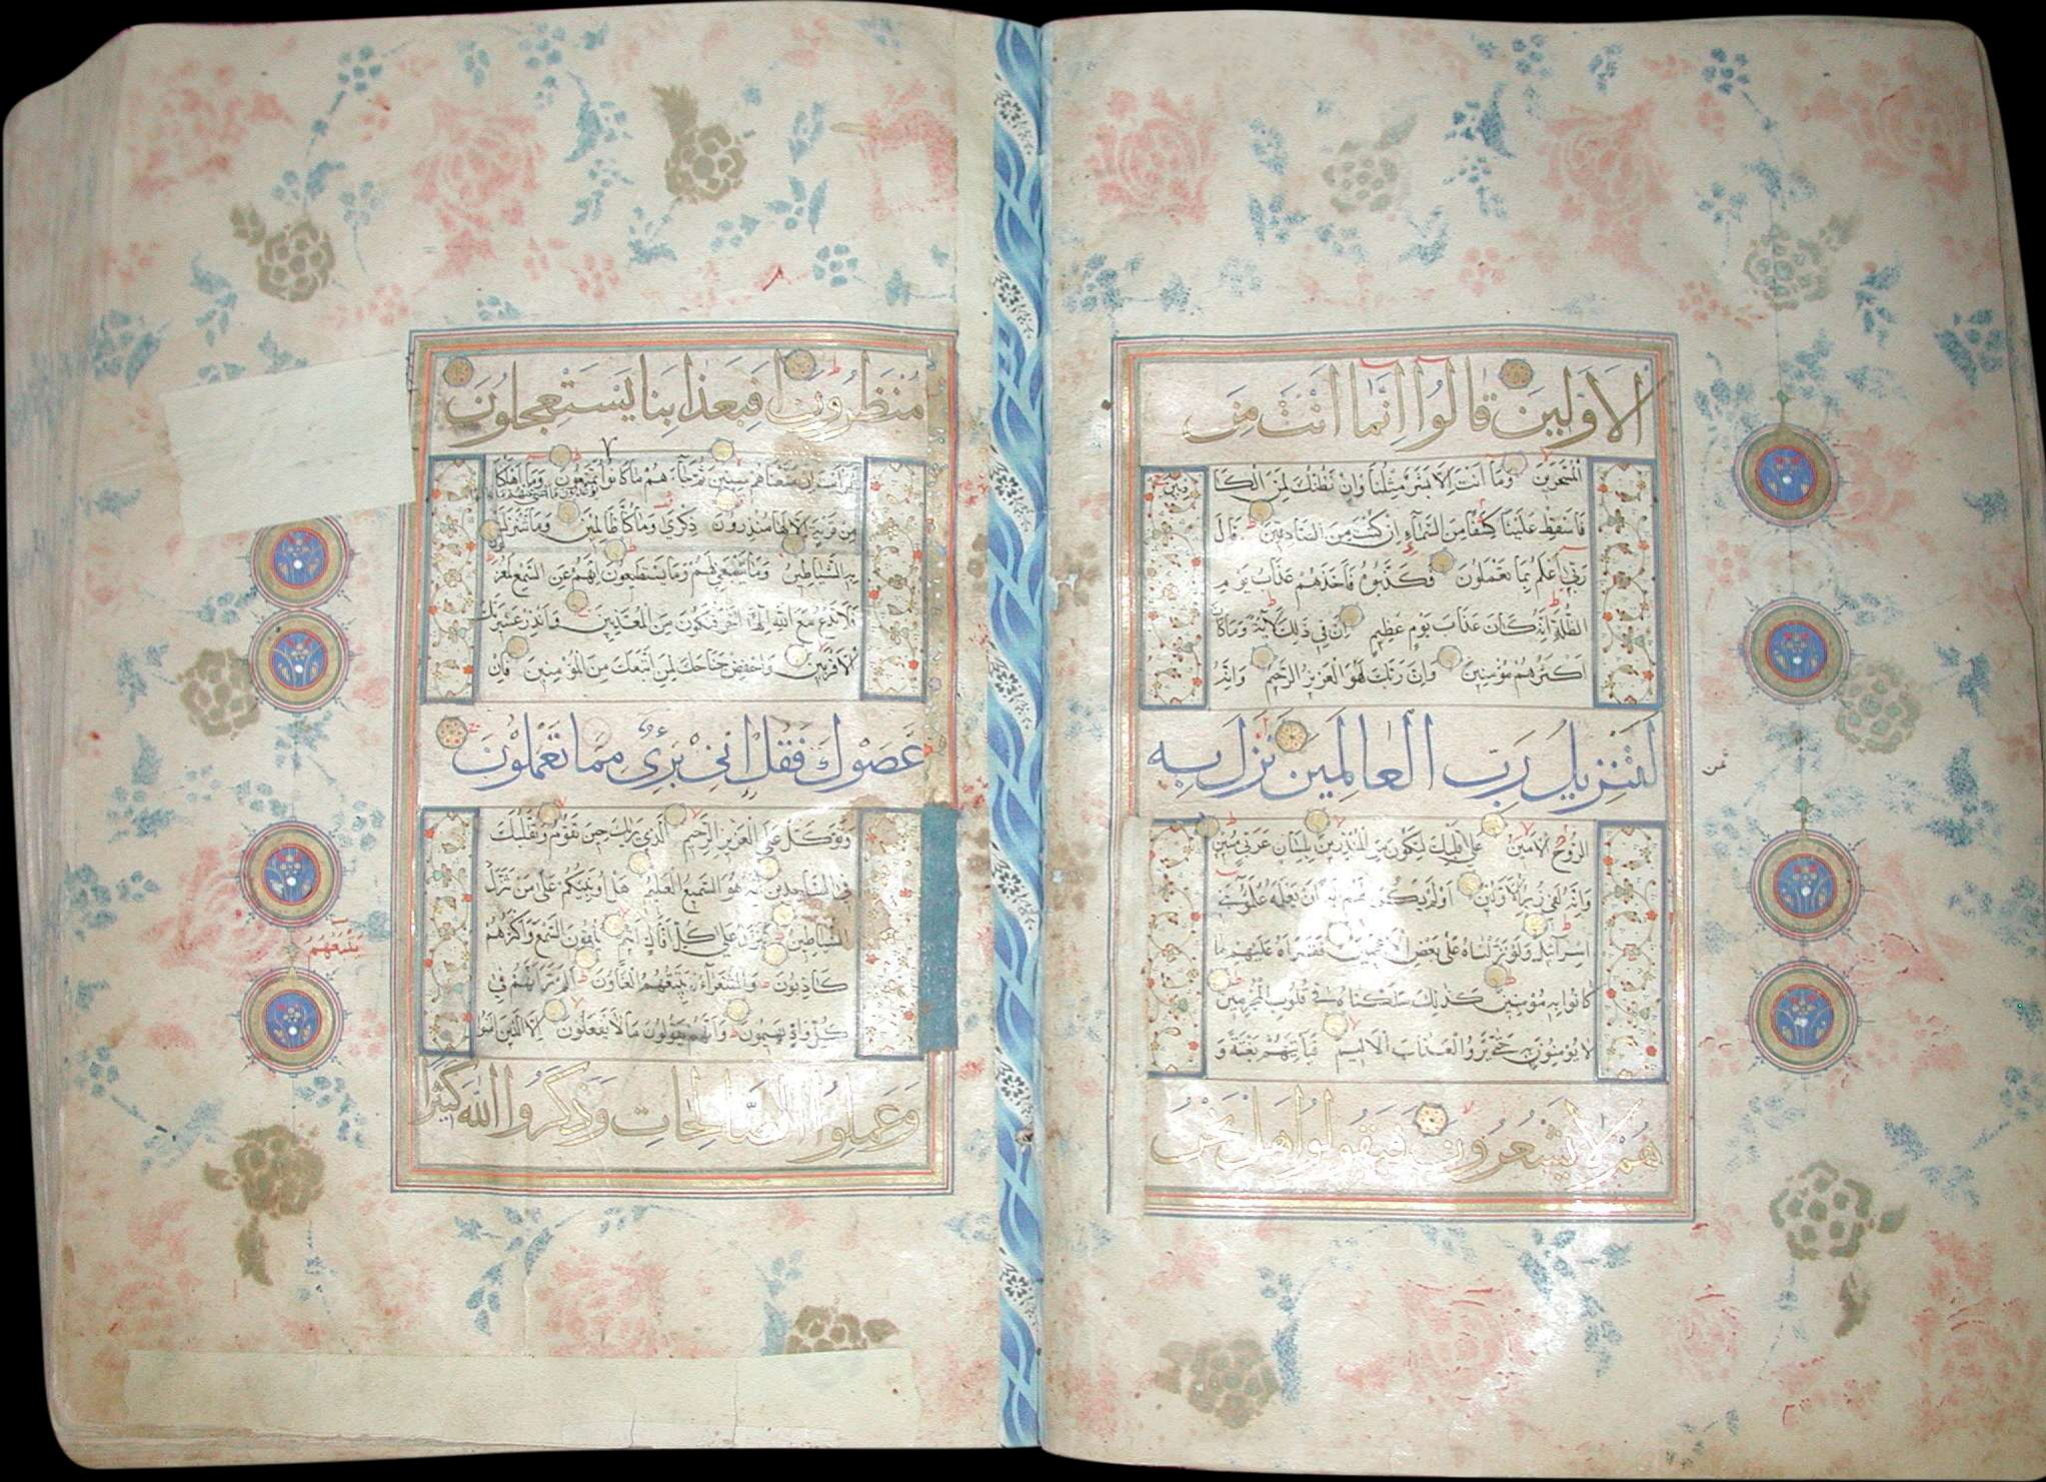 الاولين قالوا انما انت من
المسحرين وما انت الا بشر مثلنا وان نظنك لمن الكا
ذبين
فاسقط علينا كسفا من السماء ان كنت من الصادقين قال
ربي اعلم بما تعملون فكذبوه فاخذهم عذاب يوم
الظلة انه كان عذاب يوم عظيم ان في ذلك لاية وما كان
اكثرهم مؤمنين وان ربك لهو العزيز الرحيم وانه
لتنزيل رب العالمين نزل به
ثمن
الروح الامين على قلبك لتكون من المنذرين بلسان عربي مبين
وانه لفي زبر الاولين اولم يكن لهم اية ان يعلمه علمؤا بني
اسرائيل ولو نزلناه على بعض الاعجمين فقراه عليهم ما
كانوا به مؤمنين كذلك سلكناه في قلوب المجرمين
لا يؤمنون حتى يروا العذاب الاليم فياتيهم بغتة و
هم لا يشعرون فيقولوا هل نحن
منظرون افبعذابنا يستعجلون
افرايت ان متعناهم سنين ثم جاءهم ما كانوا يمتعون وما اهلكنا
من قرية الا لها منذرون ذكرى وما كنا ظالمين وما تنزلت
به الشياطين وما ينبغي لهم وما يستطيعون انهم عن السمع لمعزولون
فلا تدع مع الله الها اخر فتكون من المعذبين وانذر عشيرتك
الاقربين واخفض جناحك لمن اتبعك من المؤمنين فان
عصوك فقل اني بريء مما تعملون
وتوكل على العزيز الرحيم الذي يريك حين تقوم وتقلبك
في الساجدين انه هو السميع العليم هل انبئكم على من تنزل
الشياطين تنزل على كل افاك اثيم يلقون السمع واكثرهم
كاذبون والشعراء يتبعهم الغاون الم تر انهم في
يتبعهم
كل واد يهيمون وانهم يقولون ما لا يفعلون الا الذين امنوا
وعملوا الصالحات وذكروا الله كثيرا